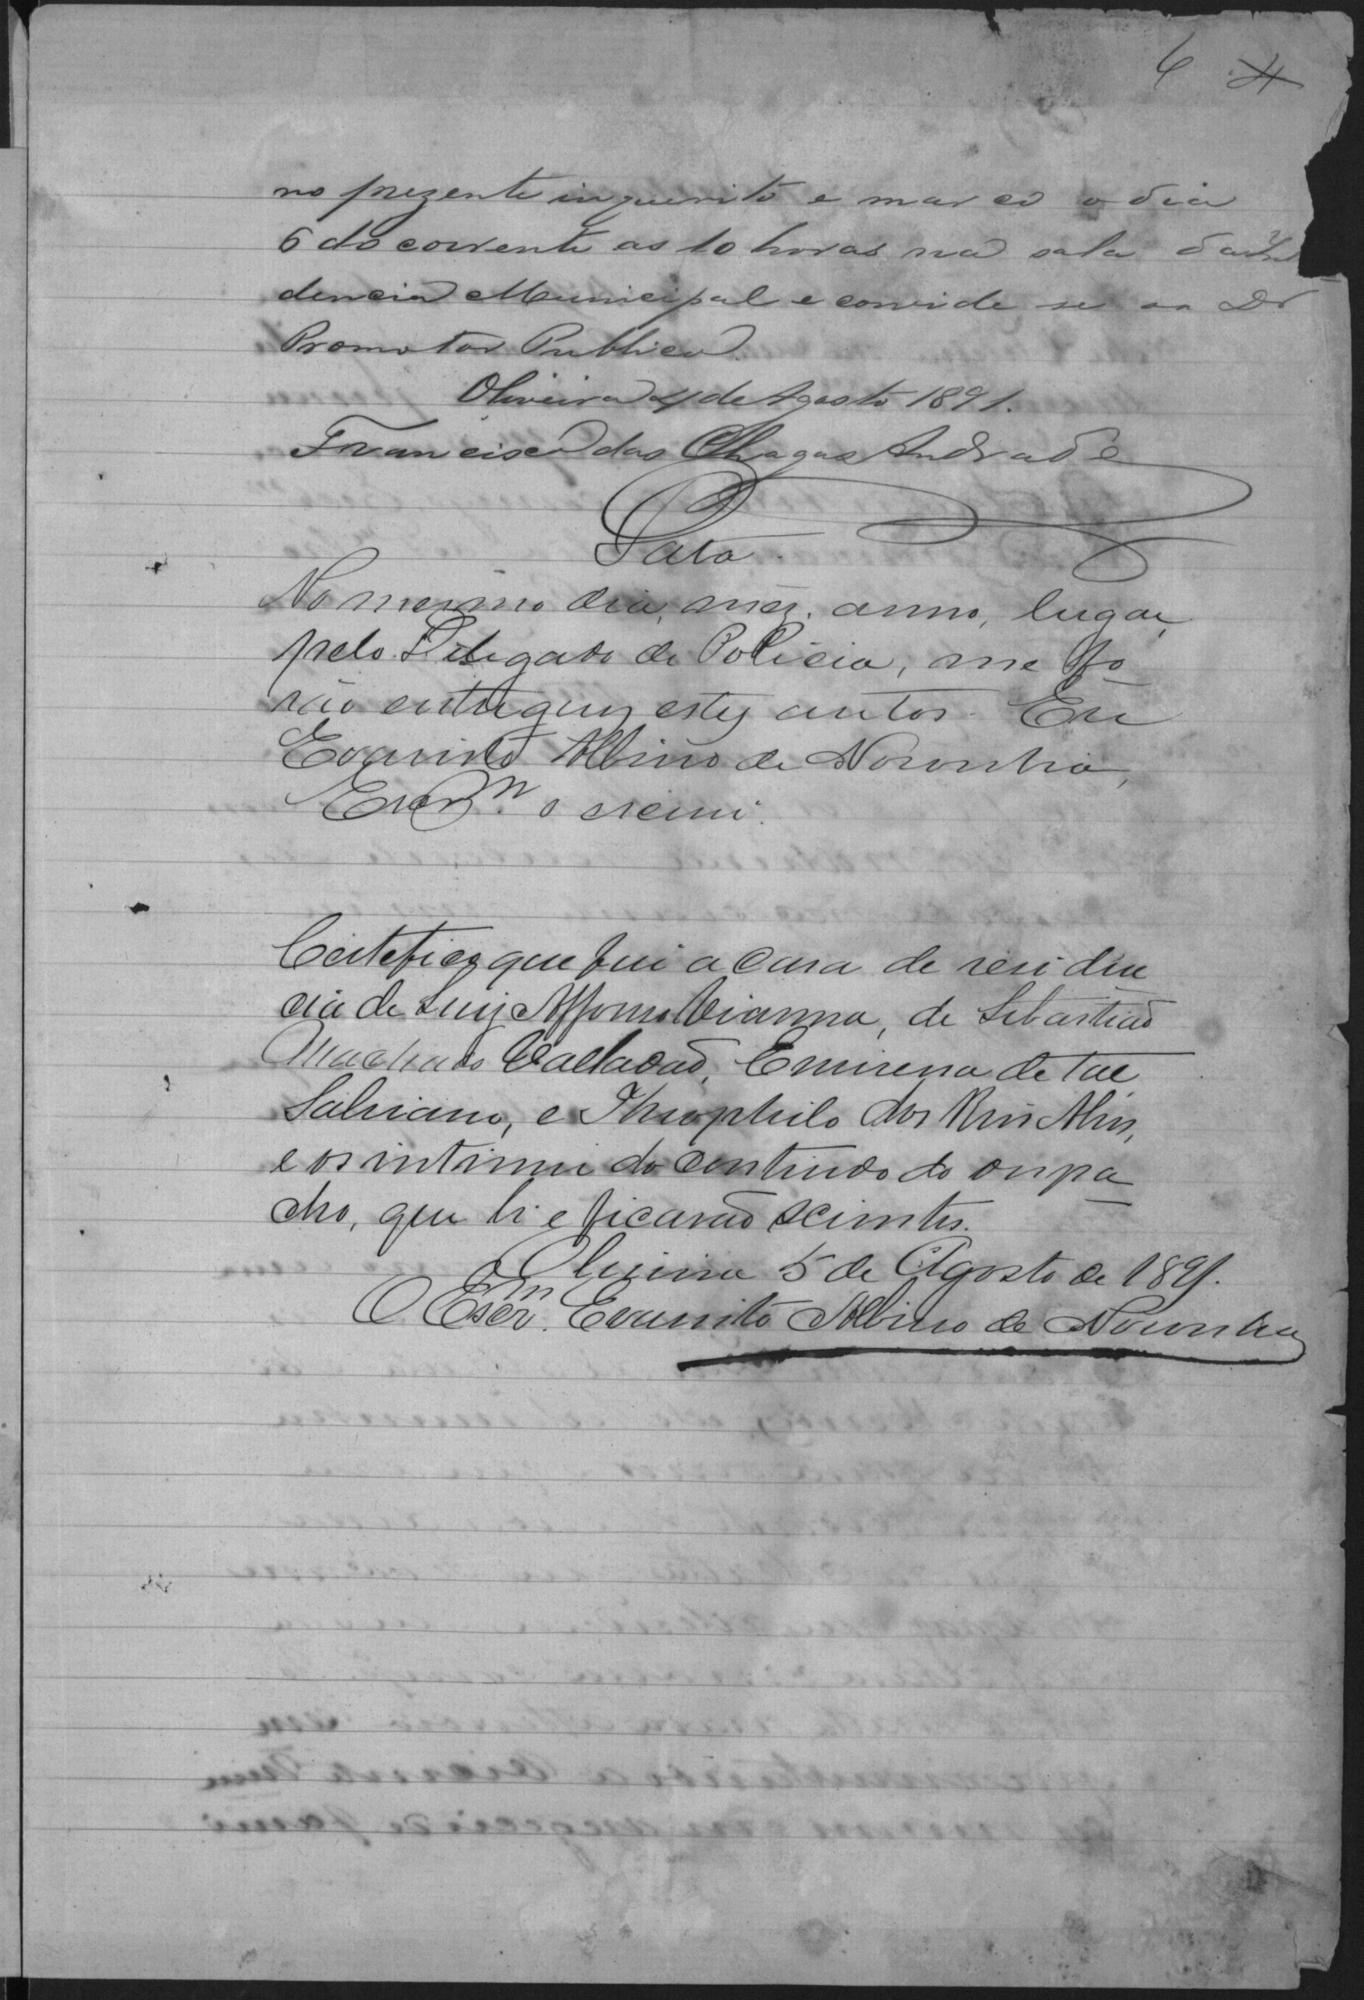 6 4
no prezente inquerito e marco o dia
6 do corrente as 10 horas na sala da In
dencia Municipal e convide se ao Dr
Promotor Publico.
Oliveira 4 de Agosto 1891.
Francisco das Chagas Andrade
Data.
No mesmo dia, mez, anno, lugar,
pelo Delegado de Policia, me fo
rão entregues estes autos. Eu
Evaristo Albino de Noronha,
Escrm. o screvi.
Certefico que fui a casa de residen
cia de Luiz Affonso Vianna, de Sebastião
Machado Valladão, de tal
Salviano, e Theophilo dos Reis Alves,
e os intimei do contiudo do despa
cho, que li e ficarão scientes.
Oliveira 5 de Agosto de 1891.
O Escrm. Evaristo Albino de Noronha